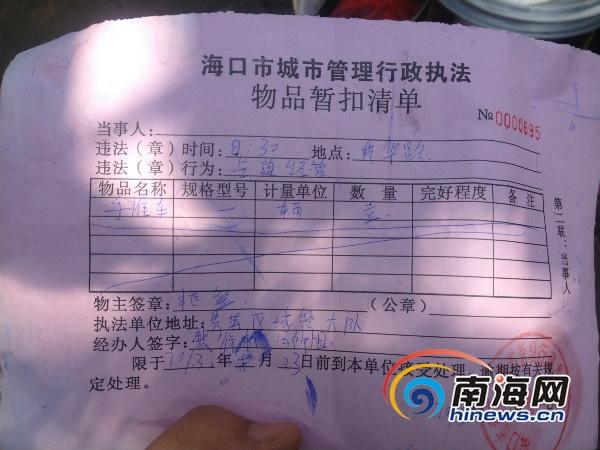 海口市城市管理行政执法
物品暂扣清单
№0000695
当事人：
违法（章）时间：8:30 地点：
违法（章）行为：占道经营
物品名称 规格型号 计量单位 数量 完好程度 备注
手推车 一 辆 壹
第二联：当事人
物主签章： （公章）
执法单位地址： 区城管大队
经办人签字：
限于2013年 月23日前到本单位接受处理，逾期按有关规
定处理。
南海网
hinews.cn